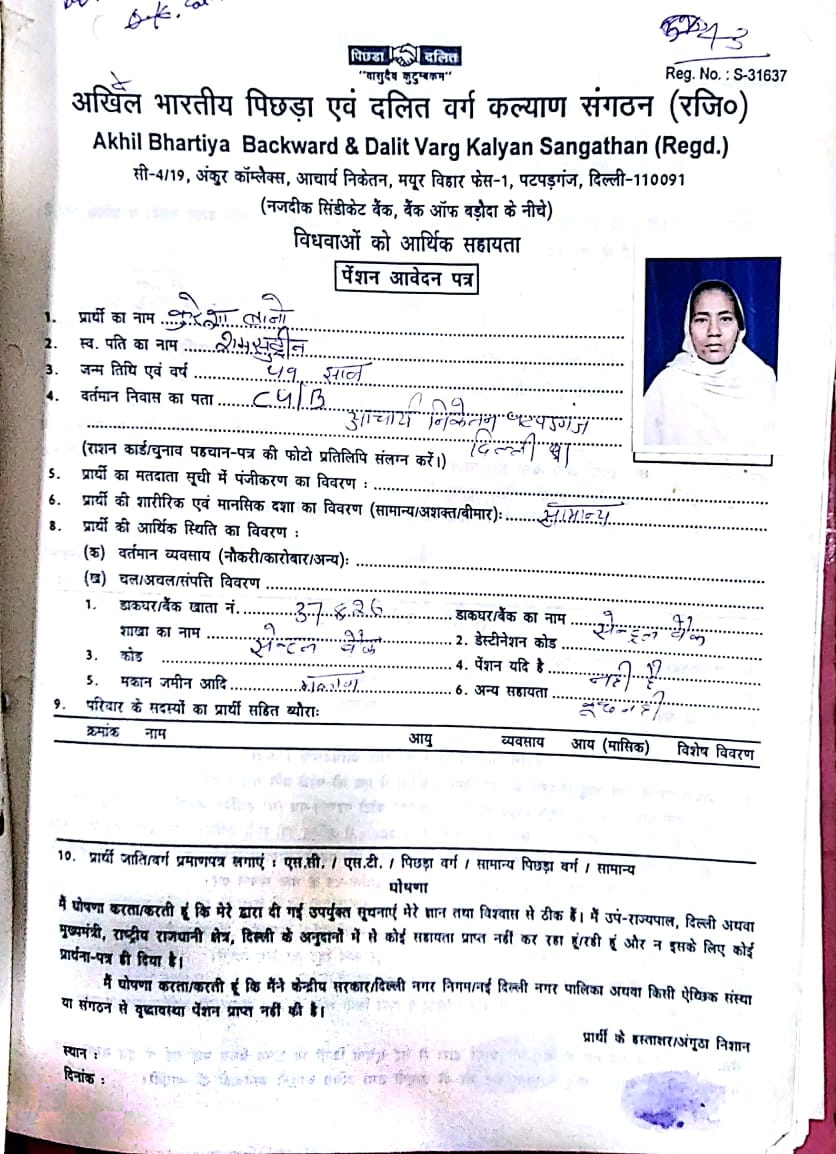 पिछड़ा दलित
"वासुदेव कुटुम्बकम"
Reg. No. : S-31637
अखिल भारतीय पिछड़ा एवं दलित वर्ग कल्याण संगठन (रजि०)
Akhil Bhartiya Backward & Dalit Varg Kalyan Sangathan (Regd.)
सी-4/19, अंकुर कॉम्लैक्स, आचार्य निकेतन, मयूर विहार फेस-1, पटपड़गंज, दिल्ली-110091
(नजदीक सिंडीकेट बैंक, बैंक ऑफ बड़ौदा के नीचे)
विधवाओं को आर्थिक सहायता
पेंशन आवेदन पत्र
1. प्रार्थी का नाम
2. स्व. पति का नाम शमसुद्दीन
3. जन्म तिथि एवं वर्ष ५१ साल
4. वर्तमान निवास का पता
आचार्य निकेतन पटपड़गंज
दिल्ली
(राशन कार्ड/चुनाव पहचान-पत्र की फोटो प्रतिलिपि संलग्न करें।)
5. प्रार्थी का मतदाता सूची में पंजीकरण का विवरण :
6. प्रार्थी की शारीरिक एवं मानसिक दशा का विवरण (सामान्य/अशक्त/बीमार): सामान्य
8. प्रार्थी की आर्थिक स्थिति का विवरण :
(क) वर्तमान व्यवसाय (नौकरी/कारोबार/अन्य):
(ख) चल/अचल/संपत्ति विवरण
1. डाकघर/बैंक खाता नं. 37826 डाकघर/बैंक का नाम सेन्ट्रल बैंक
शाखा का नाम सेन्टल बैंक 2. डेस्टीनेशन कोड
3. कोड 4. पेंशन यदि है नहीं है
5. मकान जमीन आदि 6. अन्य सहायता कुछ नहीं
9. परिवार के सदस्यों का प्रार्थी सहित ब्यौराः
क्रमांक नाम आयु व्यवसाय आय (मासिक) विशेष विवरण
10. प्रार्थी जाति/वर्ग प्रमाणपत्र लगाएं : एस.सी. / एस.टी. / पिछड़ा वर्ग / सामान्य पिछड़ा वर्ग / सामान्य
घोषणा
मैं घोषणा करता/करती हूं कि मेरे द्वारा दी गई उपर्युक्त सूचनाएं मेरे ज्ञान तथा विश्वास से ठीक हैं। मैं उप-राज्यपाल, दिल्ली अथवा
मुख्यमंत्री, राष्ट्रीय राजधानी क्षेत्र, दिल्ली के अनुदानों में से कोई सहायता प्राप्त नहीं कर रहा हूं/रही हूं और न इसके लिए कोई
प्रार्थना-पत्र ही दिया है।
मैं घोषणा करता/करती हूं कि मैंने केन्द्रीय सरकार/दिल्ली नगर निगम/नई दिल्ली नगर पालिका अथवा किसी ऐच्छिक संस्था
या संगठन से वृद्धावस्था पेंशन प्राप्त नहीं की है।
प्रार्थी के हस्ताक्षर/अंगूठा निशान
स्थान :
दिनांक :